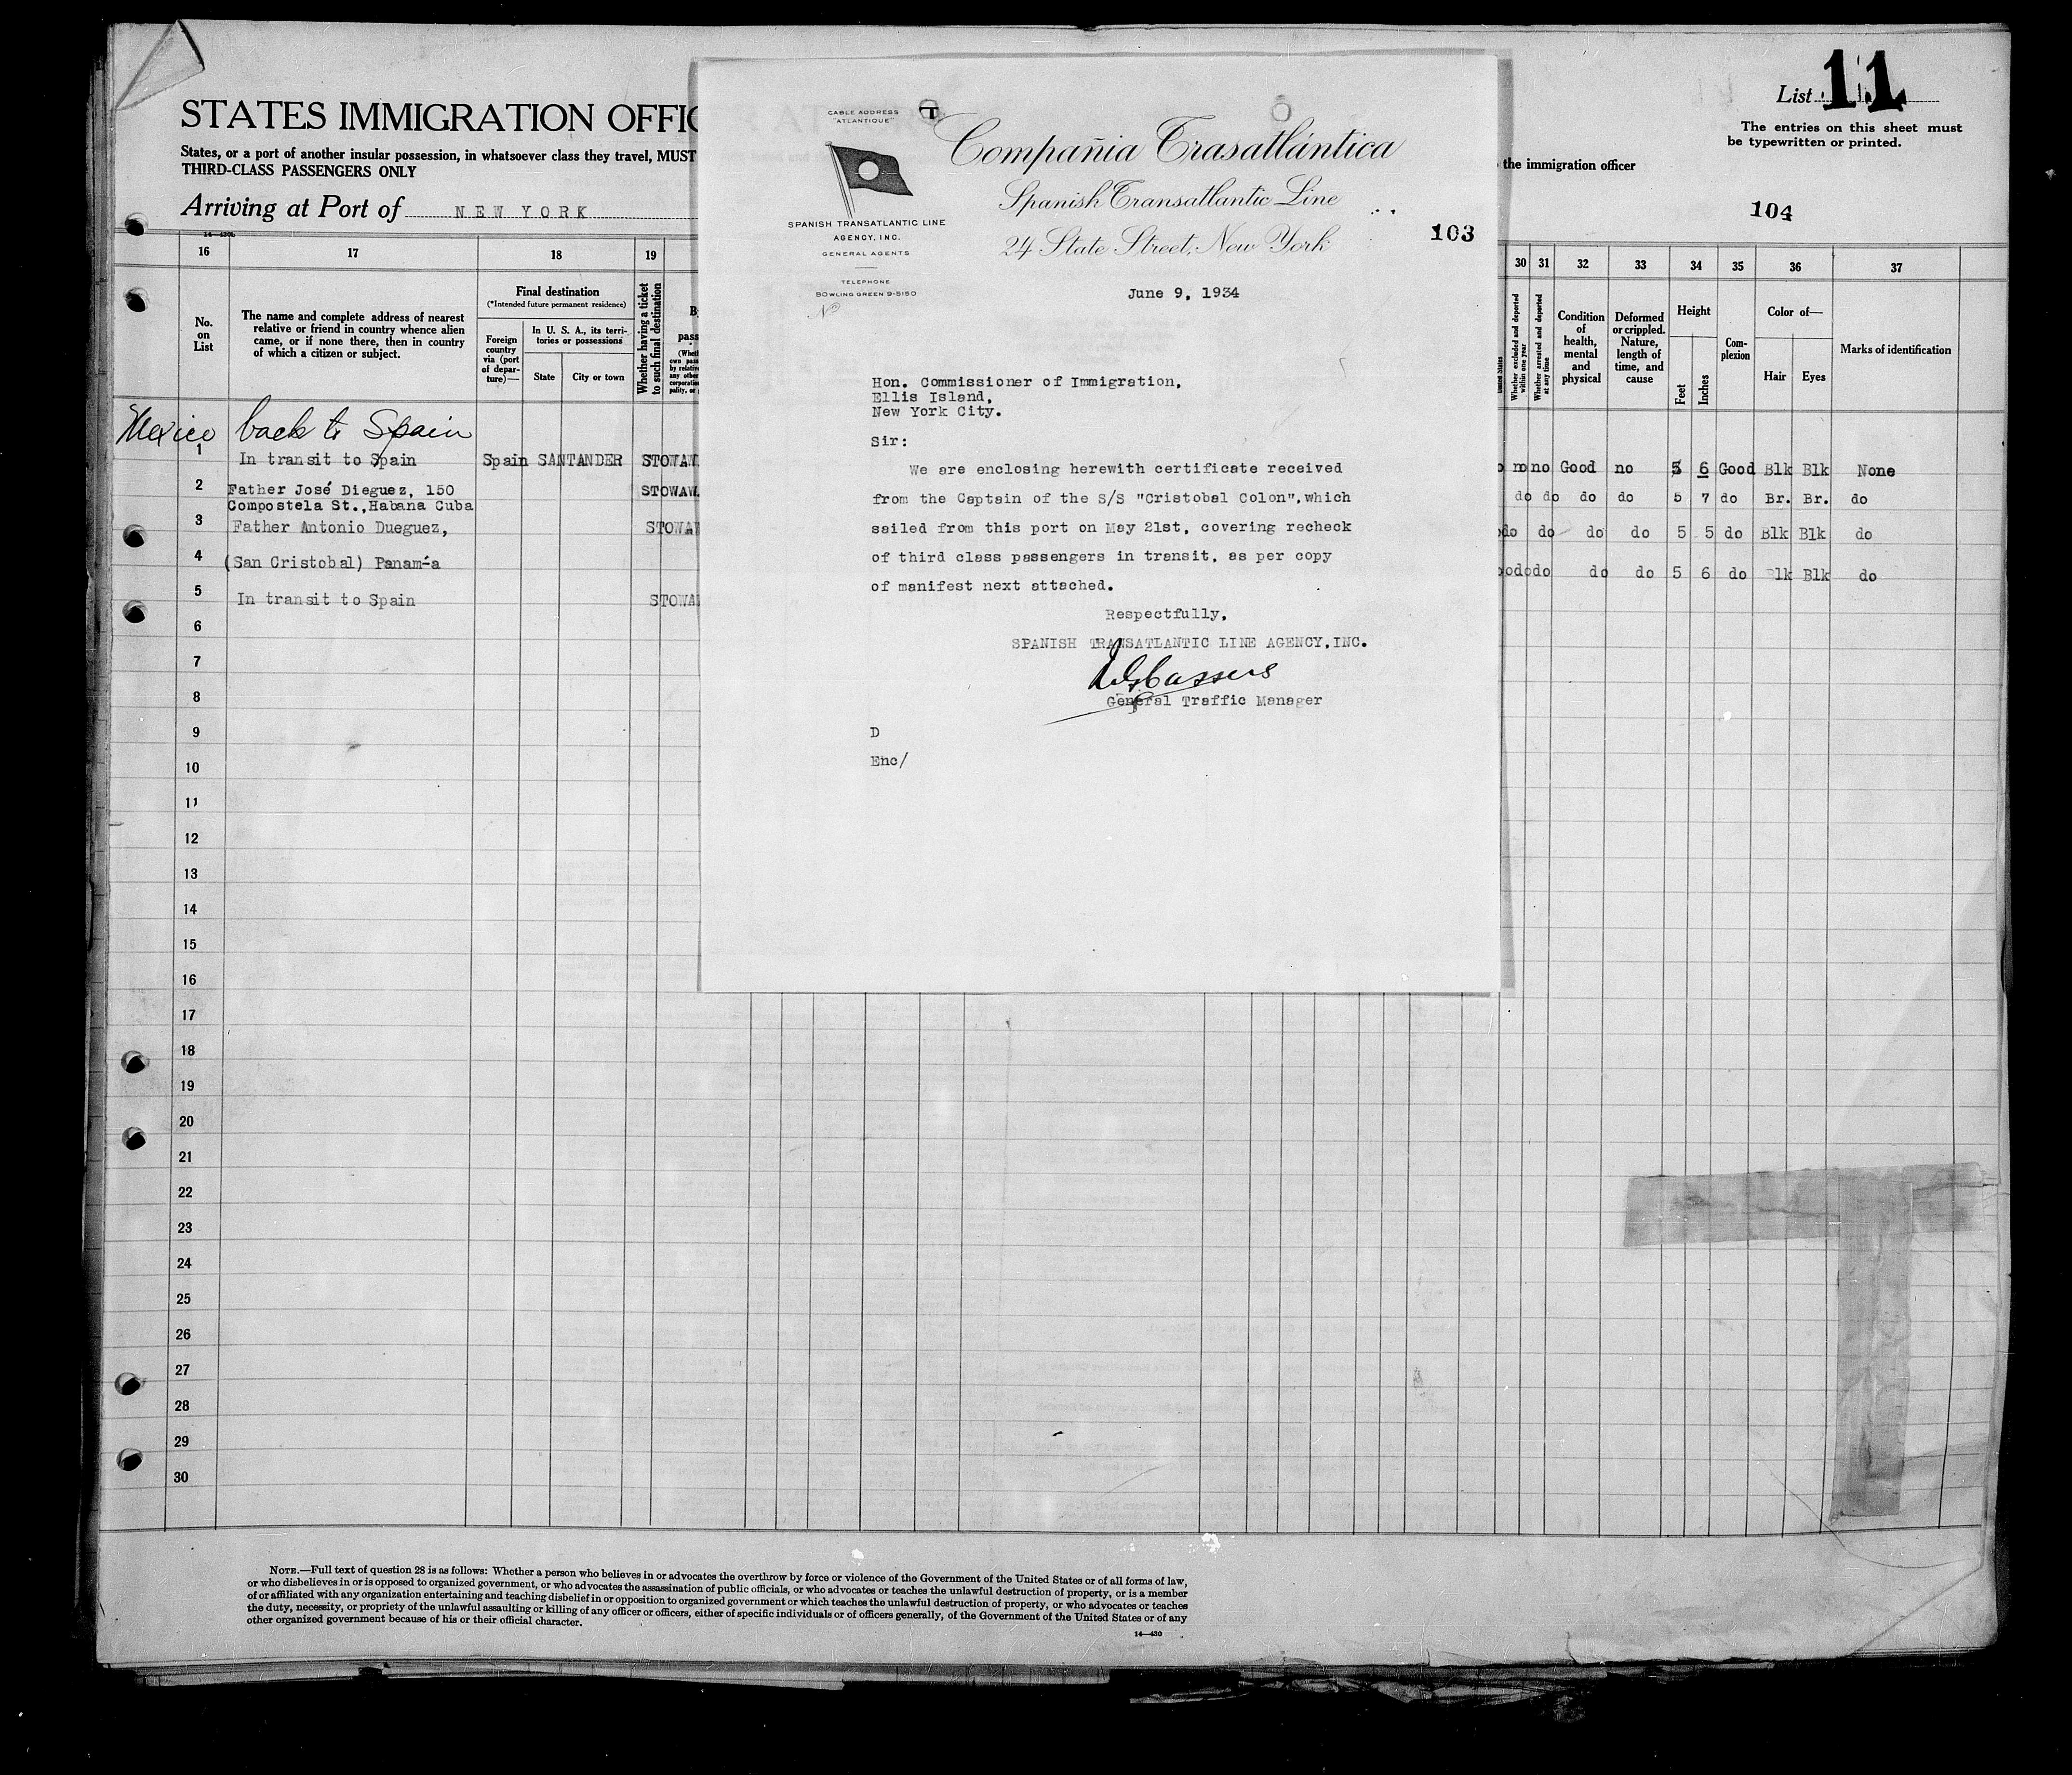 List 11
The entries on this sheet must
be typewritten or printed.
STATES IMMIGRATION OFFIC
States, or a port of another insular possession, in whatsoever class they travel, MUST
the immigration officer
THIRD-CLASS PASSENGERS ONLY
Arriving at Port of NEW YORK
104
14—430b
16 17 18 19
No. on List
The name and complete address of nearest
relative or friend in country whence alien
came, or if none there, then in country
of which a citizen or subject.
Final destination
(*Intended future permanent residence)
Foreign country via (port of departure)—
In U. S. A., its territories or possessions
State
City or town
Whether having a ticket to such final destination
Mexico back to Spain
1 In transit to Spain Spain SANTANDER STOWAW
2 Father José Dieguez, 150 STOWAW
Compostela St., Habana Cuba
3 Father Antonio Dueguez, STOWA
4 (San Cristobal) Panamá
5 In transit to Spain STOWA
6
7
8
9
10
11
12
13
14
15
16
17
18
19
20
21
22
23
24
25
26
27
28
29
30
CABLE ADDRESS
"ATLANTIQUE"
T
Compañia Trasatlántica
Spanish Transatlantic Line
24 State Street, New York
SPANISH TRANSATLANTIC LINE
AGENCY, INC.
GENERAL AGENTS
TELEPHONE
BOWLING GREEN 9-5150
103
June 9, 1934
Hon. Commissioner of Immigration,
Ellis Island,
New York City.
Sir:
We are enclosing herewith certificate received
from the Captain of the S/S "Cristobal Colon",which
sailed from this port on May 21st, covering recheck
of third class passengers in transit, as per copy
of manifest next attached.
Respectfully,
SPANISH TRANSATLANTIC LINE AGENCY,INC.
General Traffic Manager
D
Enc/
30 31 32 33 34 35 36 37
Whether excluded and deported within one year
Whether arrested and deported at any time
Condition of health, mental and physical
Deformed or crippled. Nature, length of time, and cause
Height
Feet
Inches
Complexion
Color of—
Hair
Eyes
Marks of identification
no no Good no 5 6 Good Blk Blk None
do do do do 5 7 do Br. Br. do
do do do do 5 5 do Blk Blk do
do do do do 5 6 do Blk Blk do
NOTE.—Full text of question 28 is as follows: Whether a person who believes in or advocates the overthrow by force or violence of the Government of the United States or of all forms of law,
or who disbelieves in or is opposed to organized government, or who advocates the assassination of public officials, or who advocates or teaches the unlawful destruction of property, or is a member
of or affiliated with any organization entertaining and teaching disbelief in or opposition to organized government or which teaches the unlawful destruction of property, or who advocates or teaches
the duty, necessity, or propriety of the unlawful assaulting or killing of any officer or officers, either of specific individuals or of officers generally, of the Government of the United States or of any
other organized government because of his or their official character.
14—430